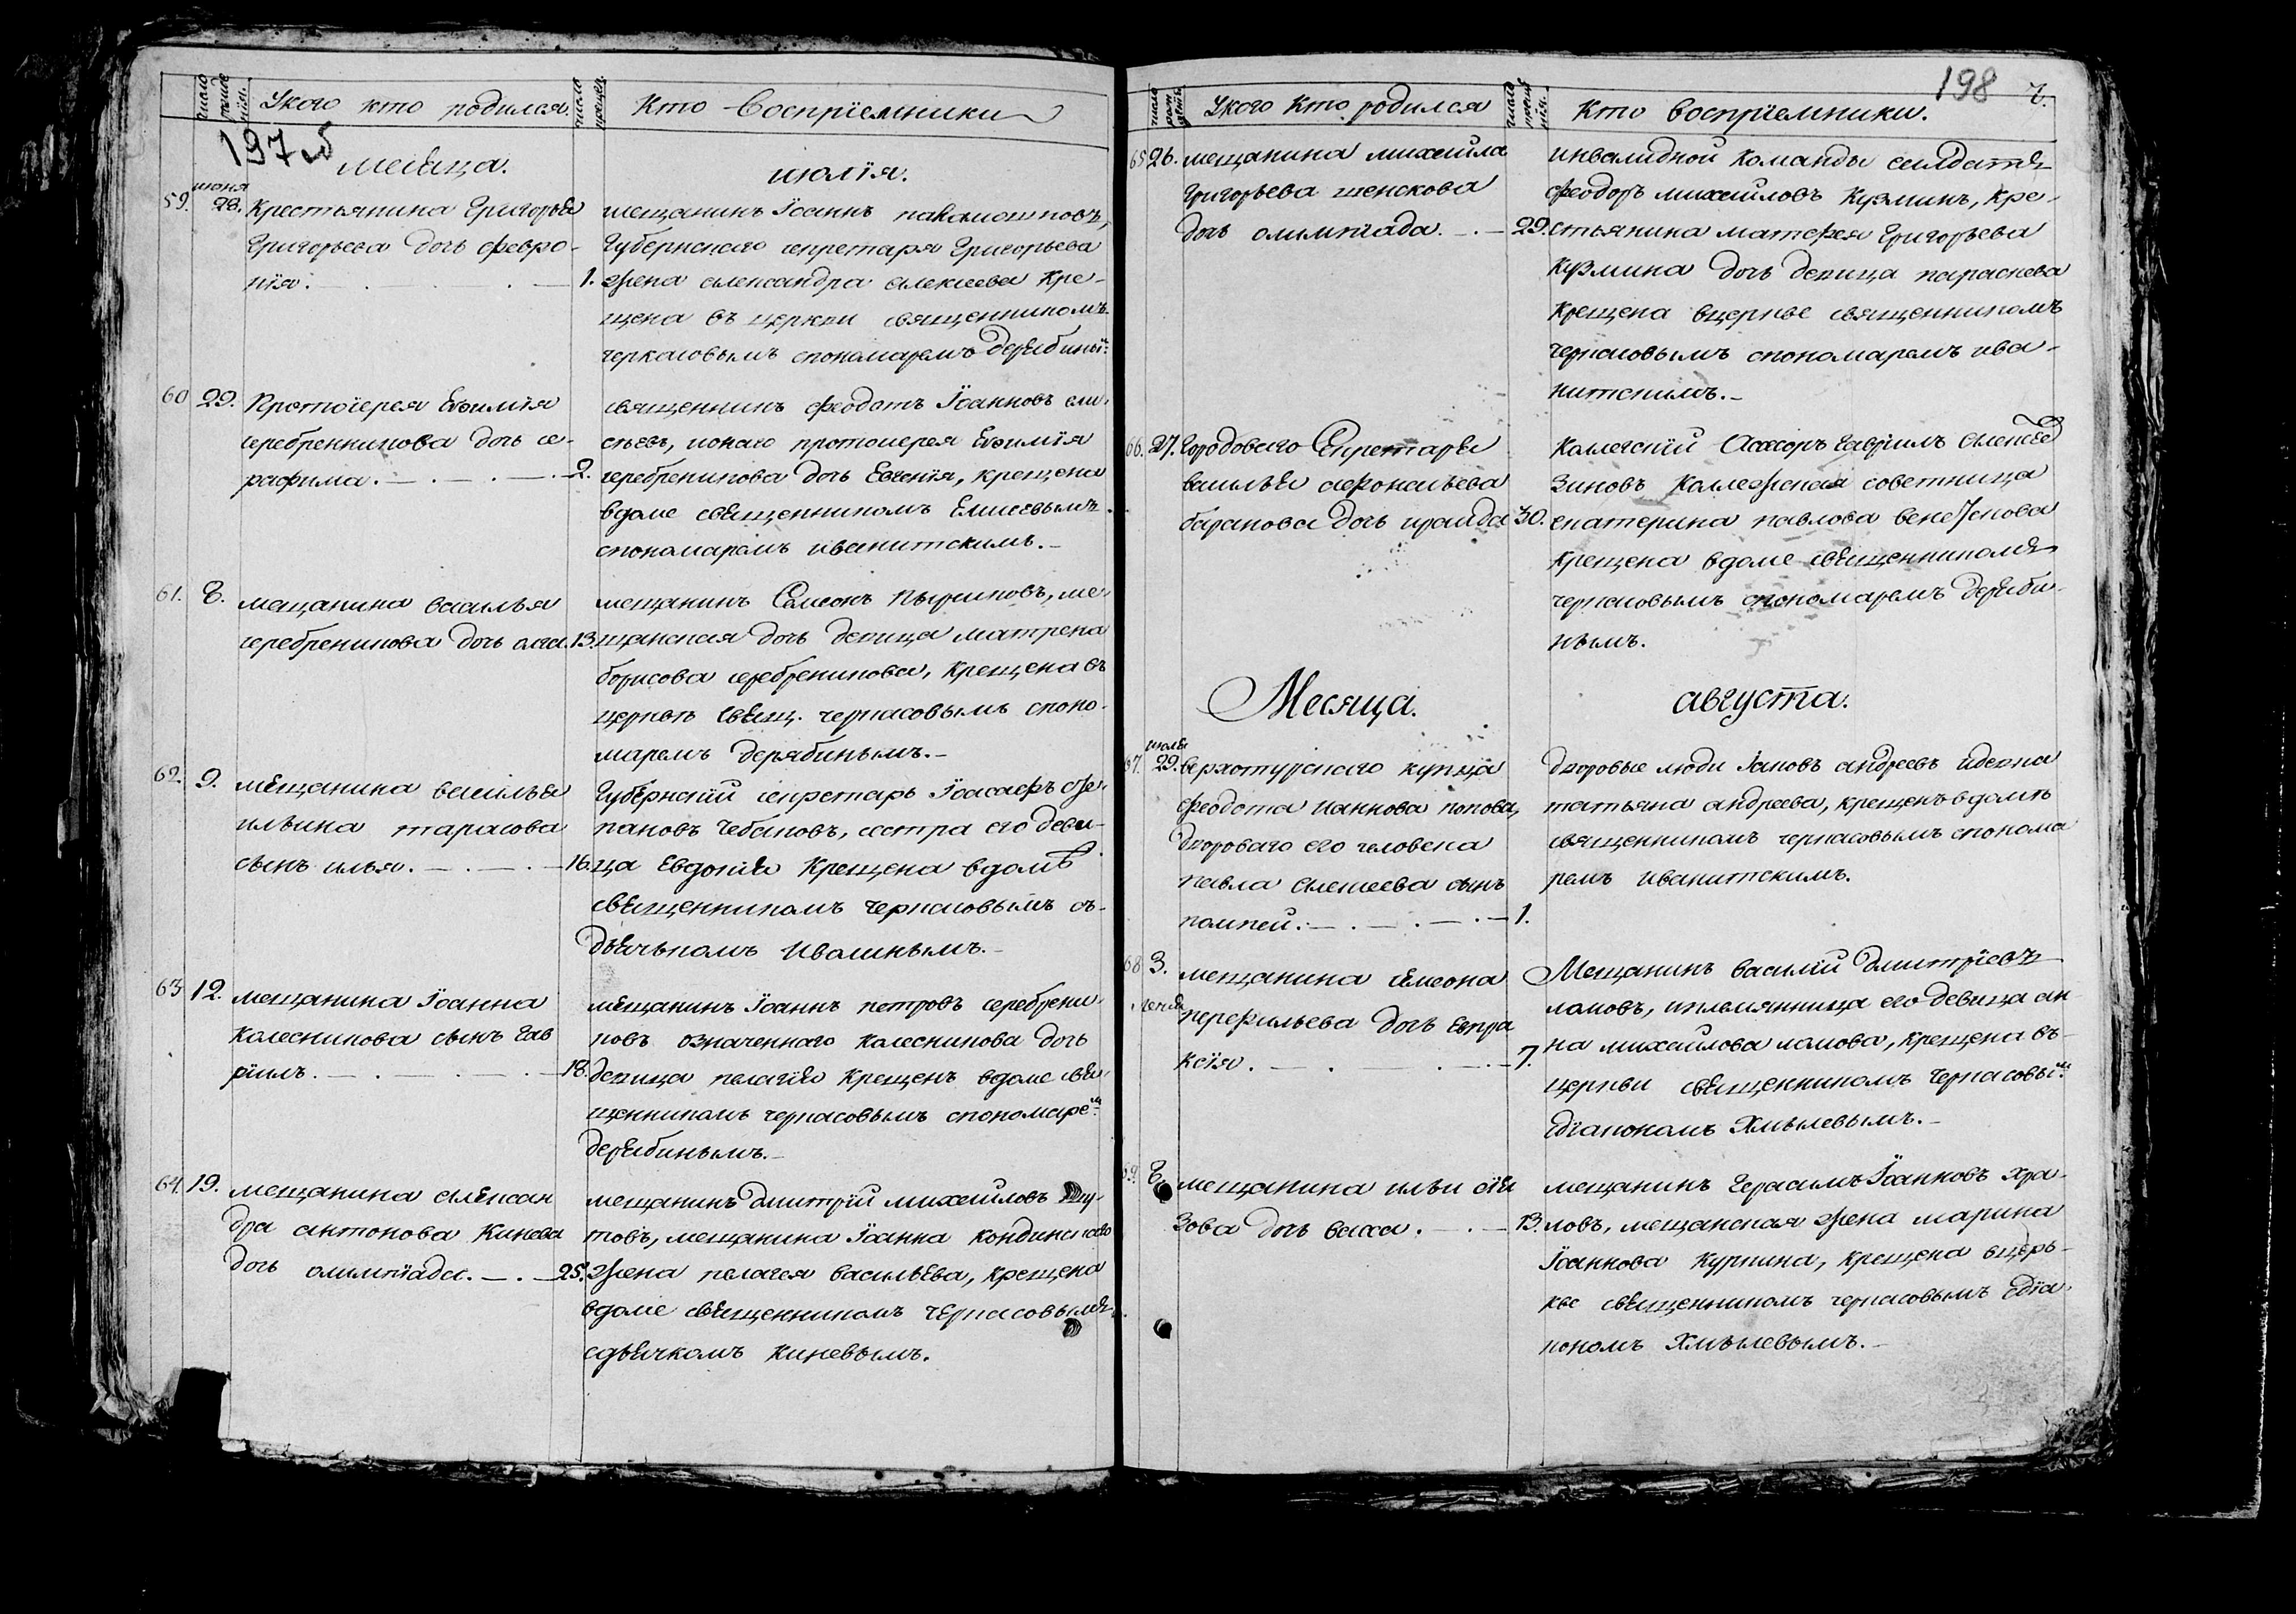 число рожде нія.
Укого кто родился.
число крещен.
Кто восприемники
197 об
месяца.
июлiя.
59.
июня 28.
крестьянина Григорья
Григорьева дочь февро-
нiя.
1.
мещанинъ Iоаннъ
Губернскаго секретаря Григорьева
жена александра алексеева кре-
щена въ церкви священникомъ
черкасовымъ спономаремъ дерябины.м
60
29.
Протоiерея Евѳимiя
серебренникова дочь се-
рафима.
2.
священникъ феодотъ Iоанновъ ели-
сѣевъ, онаго протоиерея Евѳимiя
серебреникова дочь Евгенiя, крещена
вдоме священникомъ Елисевымъ
спономаремъ иванитскимъ.
61.
8.
мещанина василья
серебреникова дочь
13.
мещанинъ Симеонъ ме-
щанская дочь девица матрена
борисова серебреникова, крещена въ
церкве свящ. черкасовымъ споно-
маремъ дерябинымъ.
62.
9.
мещанина василья
ильина тарасова
сынъ илья.
16.
Губернскiй секретарь Iоасафъ сте-
пановъ Чебаковъ, сестра его деви-
ца Евдокия крещена вдомѣ
священникомъ черкасовымъ съ-
дьячькомъ Ивашнымъ.
63
12.
мещанина Iоанна
колесникова сынъ гав
рiилъ.
18.
мещанинъ Iоаннъ петровъ серебрени-
ковъ означеннаго колесникова дочь
девица пелагiя крещенъ вдоме свя-
щенникомъ черкасовымъ спономаре.м
дерябинымъ.
64.
19.
мещанина алексан
дра антонова Кинева
дочь олимпiада.
25.
мещанинъ дмитрiй михайловъ
товъ, мещанина Iоанна кондинскаго
жена пелагея васильева, крещена
вдоме священникомъ черкасовымъ
сдьячкомъ киневымъ.
198
Укого кто родился
Кто восприемники.
65
26.
мещанина михаила
григорьева шенскова
дочь олимпiада.
29.
инвалидной команды салдатъ
феодоръ михайловъ Кузминъ, кре-
стьянина матфея Григорьева
кузмина дочь девица параскева
крещена вцеркве священникомъ
черкасовымъ спономаремъ ива-
нитскимъ.
66.
27.
Городоваго Секретаря
василья афонасьева
баранова дочь ираида
30.
Коллегскiй Асессоръ гаврiилъ алексеев
зиновъ коллежская советница
екатерина павлова
крещена вдоме священникомъ
черкасовымъ спономаремъ деряби-
нымъ.
Месяца.
августа.
67.
июля 29.
верхотурскаго купца
феодота ианнова попова,
двороваго его человека
павла алексеева сынъ
помпей.
1.
дворовые люди Iаковъ андреевъ идевка
татьяна андреева, крещенъ вдомѣ
священникомъ черкасовымъ спонома
ремъ иванитскимъ.
68
3.
мещанина симеона
перфильева дочь Евпра
ксiя.
7.
Мещанинъ василiй дмитрiевъ
ламовъ, иплемянница его девица ан-
на михаилова ламова, крещена въ-
церкви священникомъ черкасовы.м
сдiакономъ Хмылевымъ.
69.
8.
мещанина ильи
зова дочь васса.
13.
мещанинъ герасимъ Iоанновъ хра-
мовъ, мещанская жена марина
Iоаннова куркина, крещена вцерь-
кве священникомъ черкасовымъ сдiа-
кономъ Хмылевымъ.